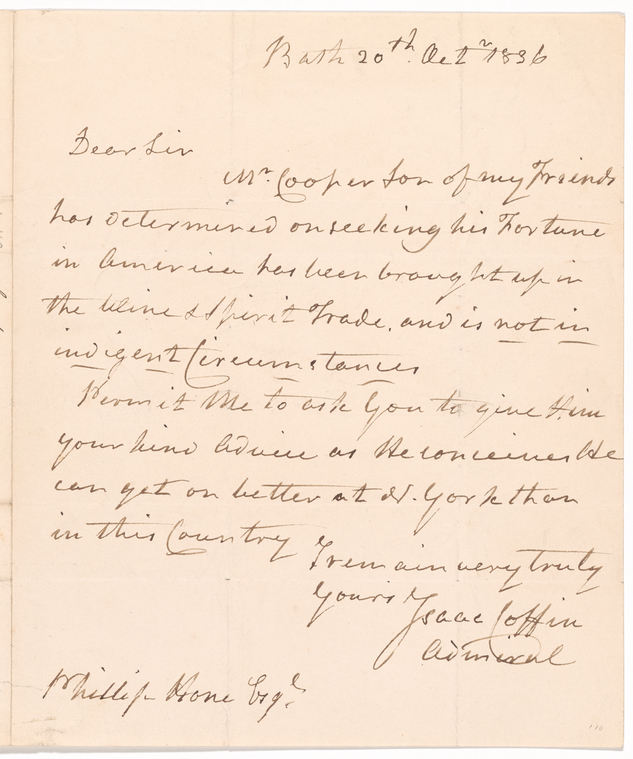 Bath 20th. Octr 1836
Dear Sir
Mr. Cooper Son of my Friends
has determined on seeking his Fortune
in America has been brought up in
the Wine & Spirit Trade, and is not in
indigent Circumstances
Permit Me to ask You to give Him
your kind Advice as He conceives He
can get on better at N. York than
in this Country
I remain very truly
Yours
Isaac Coffin
Admiral
Phillip Hone Esqr.